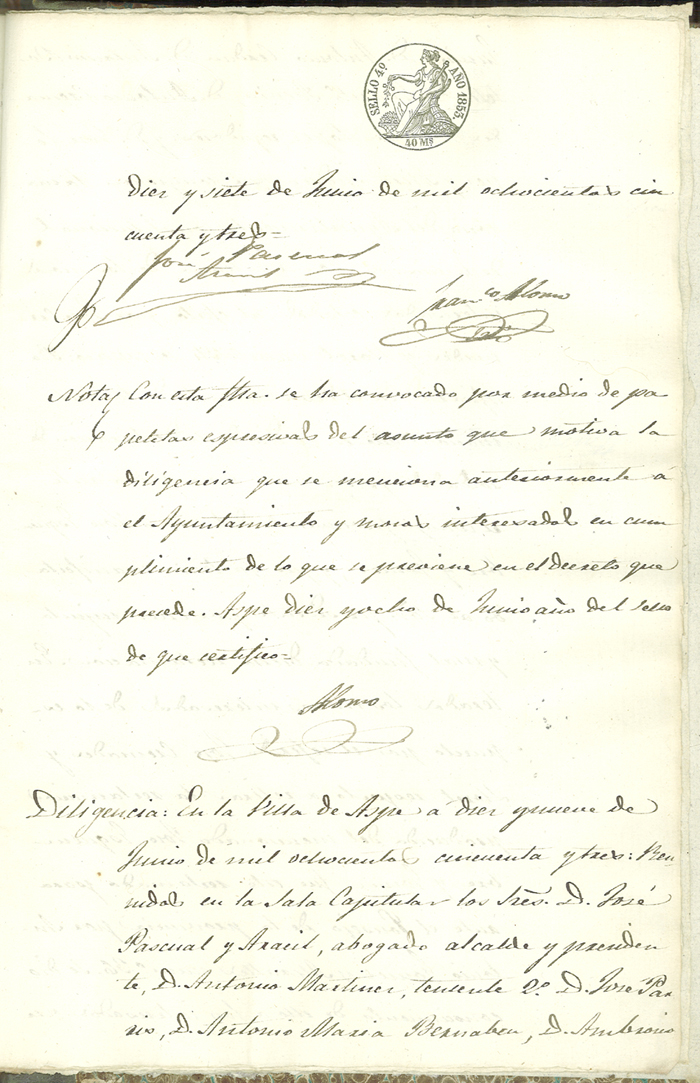 SELLO 4º. AÑO 1853.
40 Ms.
diez y siete de Junio de mil ochocientos cin
cuenta y tres=
José Pascual
Aracil
Franco Alonso
Nota Con esta fha. se ha convocado por medio de pa
peletas espresivas del asunto que motiva la
diligencia que se menciona anteriormente á
el Ayuntamiento y mozos interesados en cum
plimiento de lo que se previene en el decreto que
precede. Aspe diez y ocho de Junio año del sello
de que certifico=
Alonso
Diligencia: En la Villa de Aspe á diez y nueve de
Junio de mil ochocientos cincuenta y tres: Reu-
nidos en la Sala Capitular los Sres. D. José
Pascual y Aracil, abogado alcalde y presiden
te, D. Antonio Martinez, teniente 2º. D. José Pav
D. Antonio Maria Bernabeu, D. Ambrosio